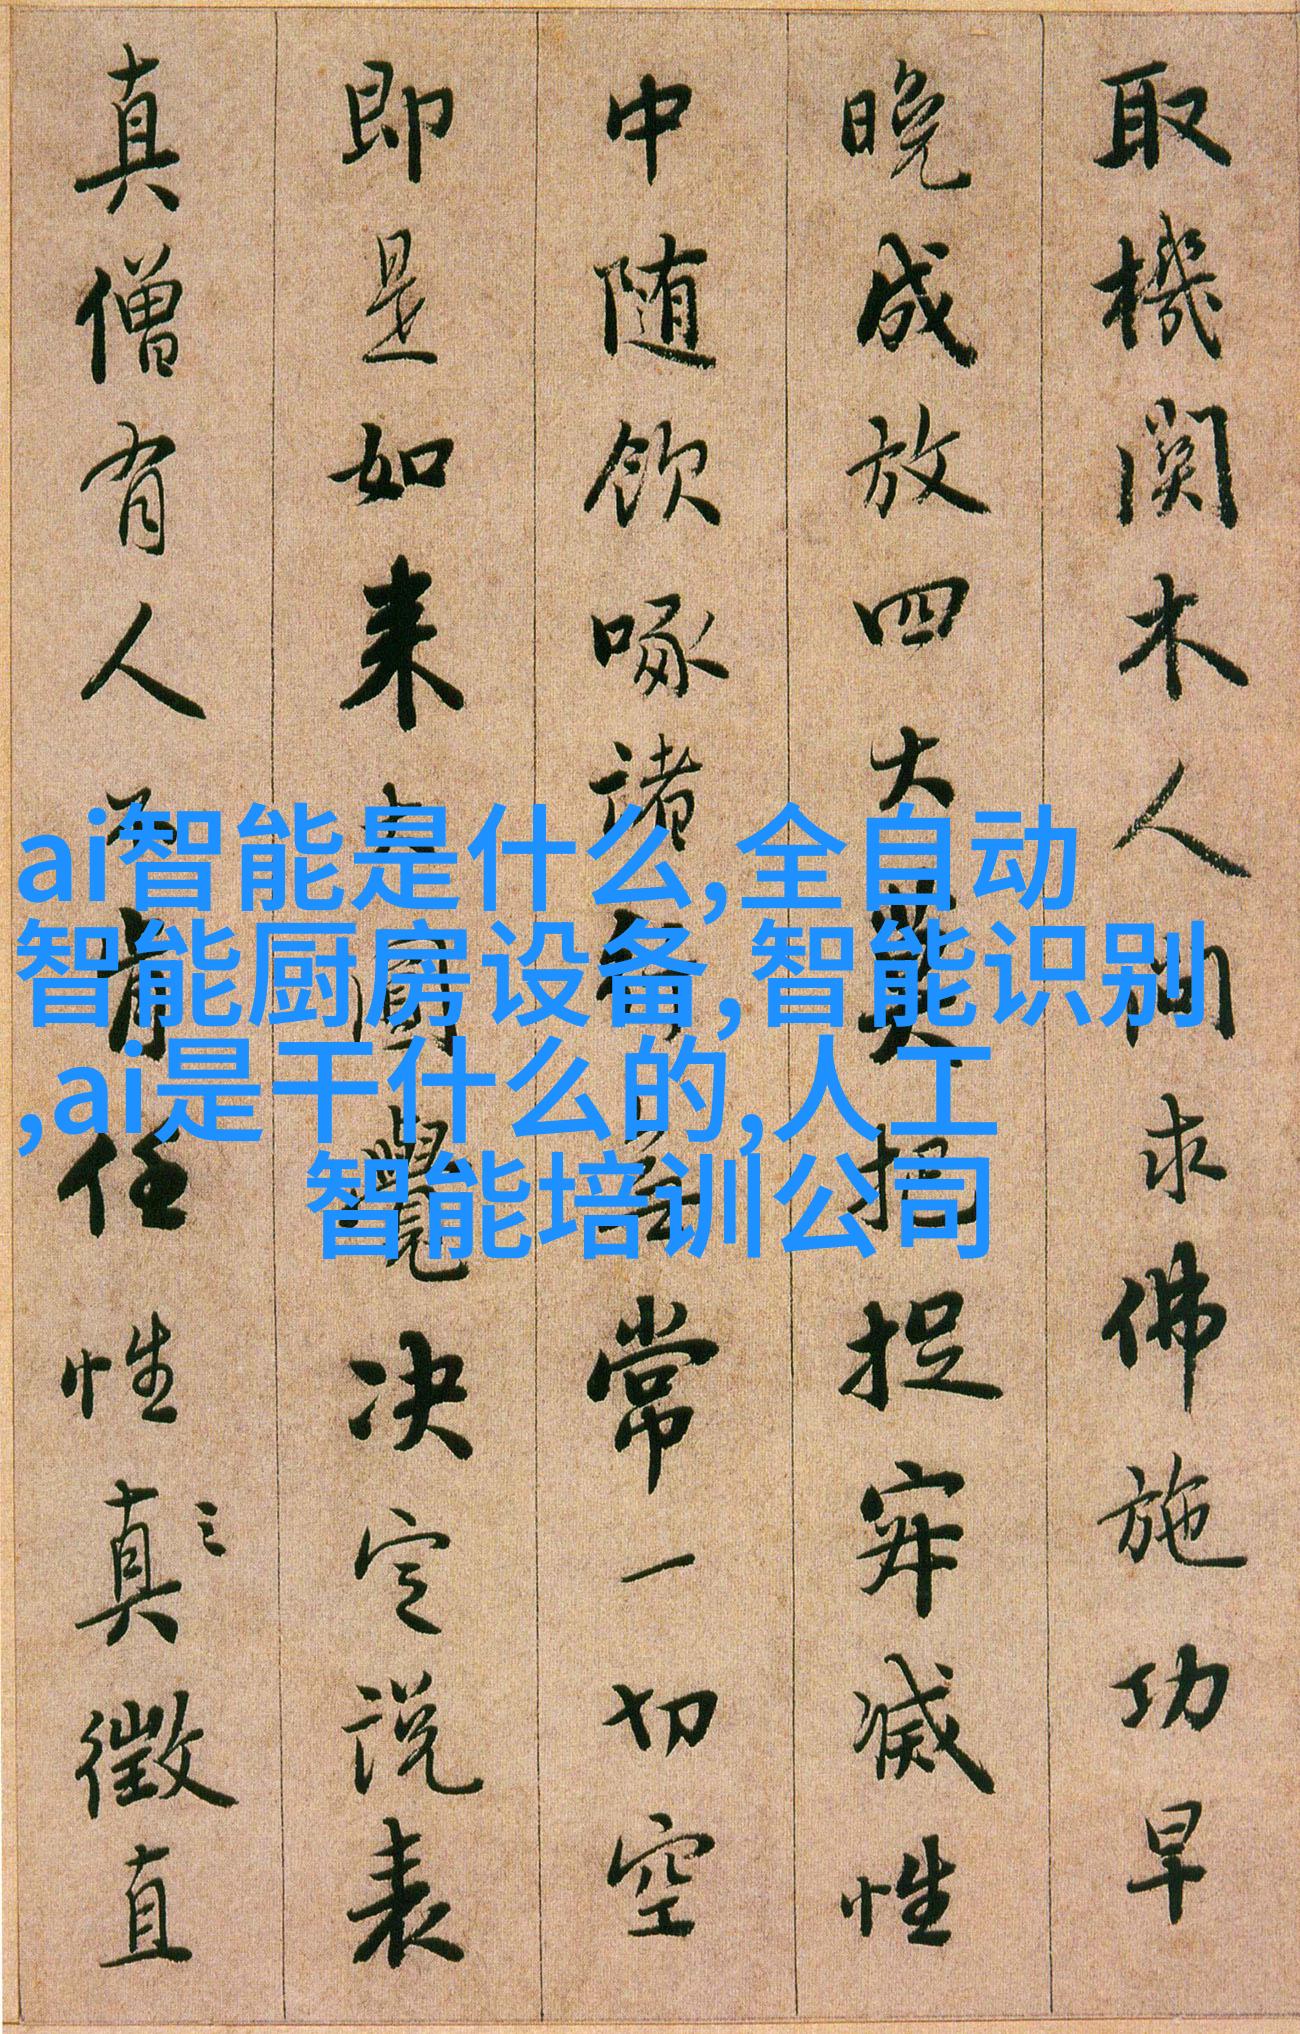 取機関木人問求佛施功早
晚成放四大莫把捉寂滅性
中随飲啄諸行無常一切空
即是如来大圓覺决定說表
真僧有人不肯任性真徵直
ai智能是什么,全自动
智能厨房设备,智能识别
,ai是干什么的,人工
智能培训公司